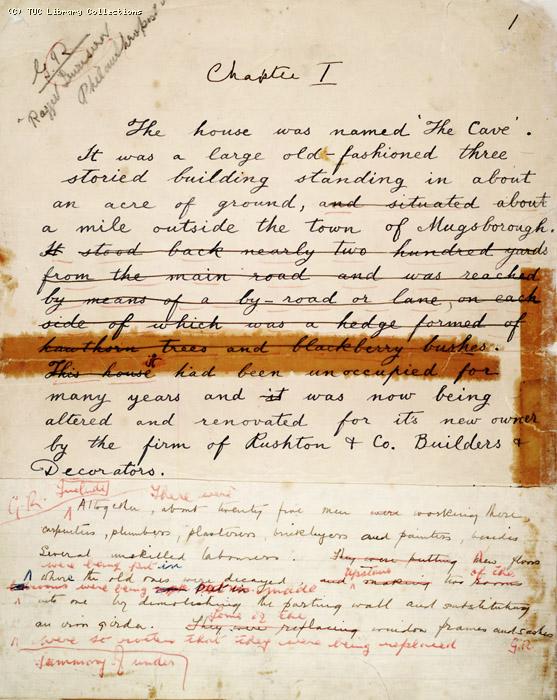 (C) TUC Library Collections
1
G.R
"Ragged
Philanthropist"
Chapter I
The house was named 'The Cave'.
It was a large old-fashioned three
storied building standing in about
an acre of ground, and situated about
a mile outside the town of Mugsborough.
It stood back nearly two hundred yards
from the main road and was reached
by means of a by-road or lane, on each
side of which was a hedge formed of
hawthorn trees and blackberry bushes.
This house it had been unoccupied for
many years and it was now being
altered and renovated for its new owner
by the firm of Rushton & Co. Builders &
Decorators.
G.R. Include There were
Altogether, about twenty five men were working there,
carpenters, plumbers, plasterers, bricklayers and painters, besides
several unskilled labourers. They were putting New floors
were being put in upstairs of the
where the old ones were decayed and making two rooms
were being put in made
into one by demolishing the parting wall and substituting
Some of the
an iron girder. They were replacing window frames and sashes
were so rotten that they were being replaced G.R
Summary of under